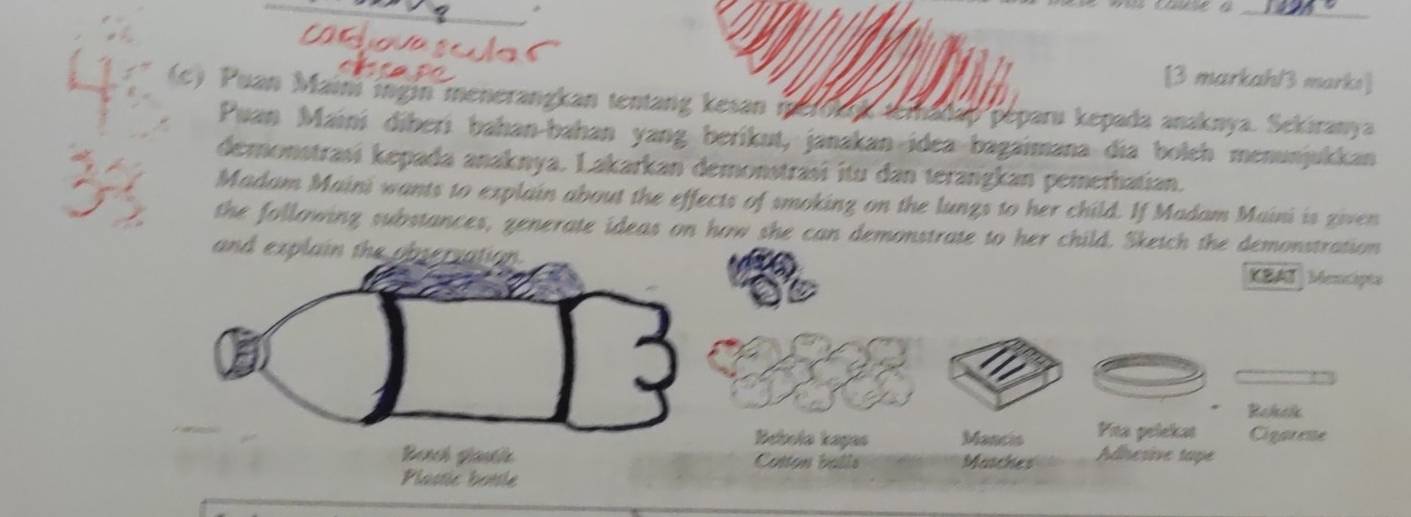 cause a
cardiovascular
[3 markah/3 marks]
(c) Puan Maini ingin menerangkan tentang kesan merokok terhadap peparu kepada anaknya. Sekiranya
Puan Maini diberi bahan-bahan yang berikut, janakan idea bagaimana dia boleh menunjukkan
demonstrasi kepada anaknya. Lakarkan demonstrasi itu dan terangkan pemerhatian.
Madam Maini wants to explain about the effects of smoking on the lungs to her child. If Madam Maini is given
the following substances, generate ideas on how she can demonstrate to her child. Sketch the demonstration
and explain the observation.
KBAT Mencipta
Botol plastik
Plastic bottle
Bebola kapas
Cotton balls
Mancis
Matches
Pita pelekat
Adhesive tape
Rokok
Cigarette